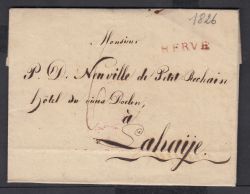 1826
HERVE
Monsieur
P. D. Neuville de Petit Rechain
hôtel du vieux Doelen,
à
Lahaije.